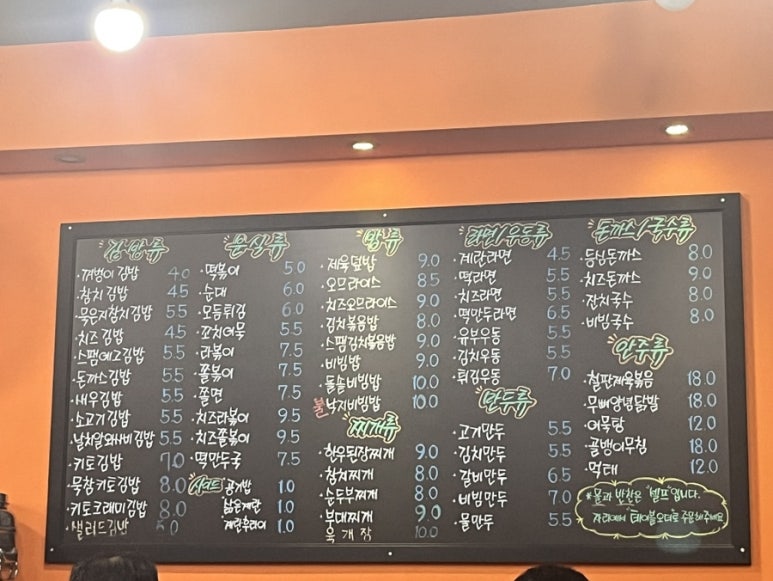 김밥류
·꺼벙이김밥 4.0
·참치김밥 4.5
·묵은지참치김밥 5.5
·치즈김밥 4.5
·스팸에그김밥 5.5
·돈까스김밥 5.5
·새우김밥 5.5
·소고기김밥 5.5
·날치알와사비김밥 5.5
·키토김밥 7.0
·묵참키토김밥 8.0
·키토크래미김밥 8.0
·샐러드김밥
분식류
·떡볶이 5.0
·순대 6.0
·모듬튀김 6.0
·꼬치어묵 5.5
·라볶이 7.5
·쫄볶이 7.5
·쫄면 7.5
·치즈라볶이 9.5
·치즈쫄볶이 9.5
·떡만두국 7.5
사이드 공기밥 1.0
삶은계란 1.0
계란후라이 1.0
밥류
·제육덮밥 9.0
·오므라이스 8.5
·치즈오므라이스 9.0
·김치볶음밥 8.0
·스팸김치볶음밥 9.0
·비빔밥 9.0
·돌솥비빔밥 10.0
불낙지비빔밥 10.0
찌개류
·한우된장찌개 9.0
·참치찌개 8.0
·순두부찌개 8.0
·부대찌개 9.0
육개장 10.0
라면/우동류
·계란라면 4.5
·떡라면 5.5
·치즈라면 5.5
·떡만두라면 6.5
·유부우동 5.5
·김치우동 5.5
·튀김우동 7.0
만두류
·고기만두 5.5
·김치만두 5.5
·갈비만두 6.5
·비빔만두 7.0
·물만두 5.5
돈까스/국수류
·등심돈까스 8.0
·치즈돈까스 9.0
·잔치국수 8.0
·비빔국수 8.0
안주류
·철판제육볶음 18.0
·무뼈양념닭발 18.0
·어묵탕 12.0
·골뱅이무침 18.0
·먹태 12.0
*물과 반찬은 "셀프"입니다.
자리에서 테이블오더로 주문해주세요